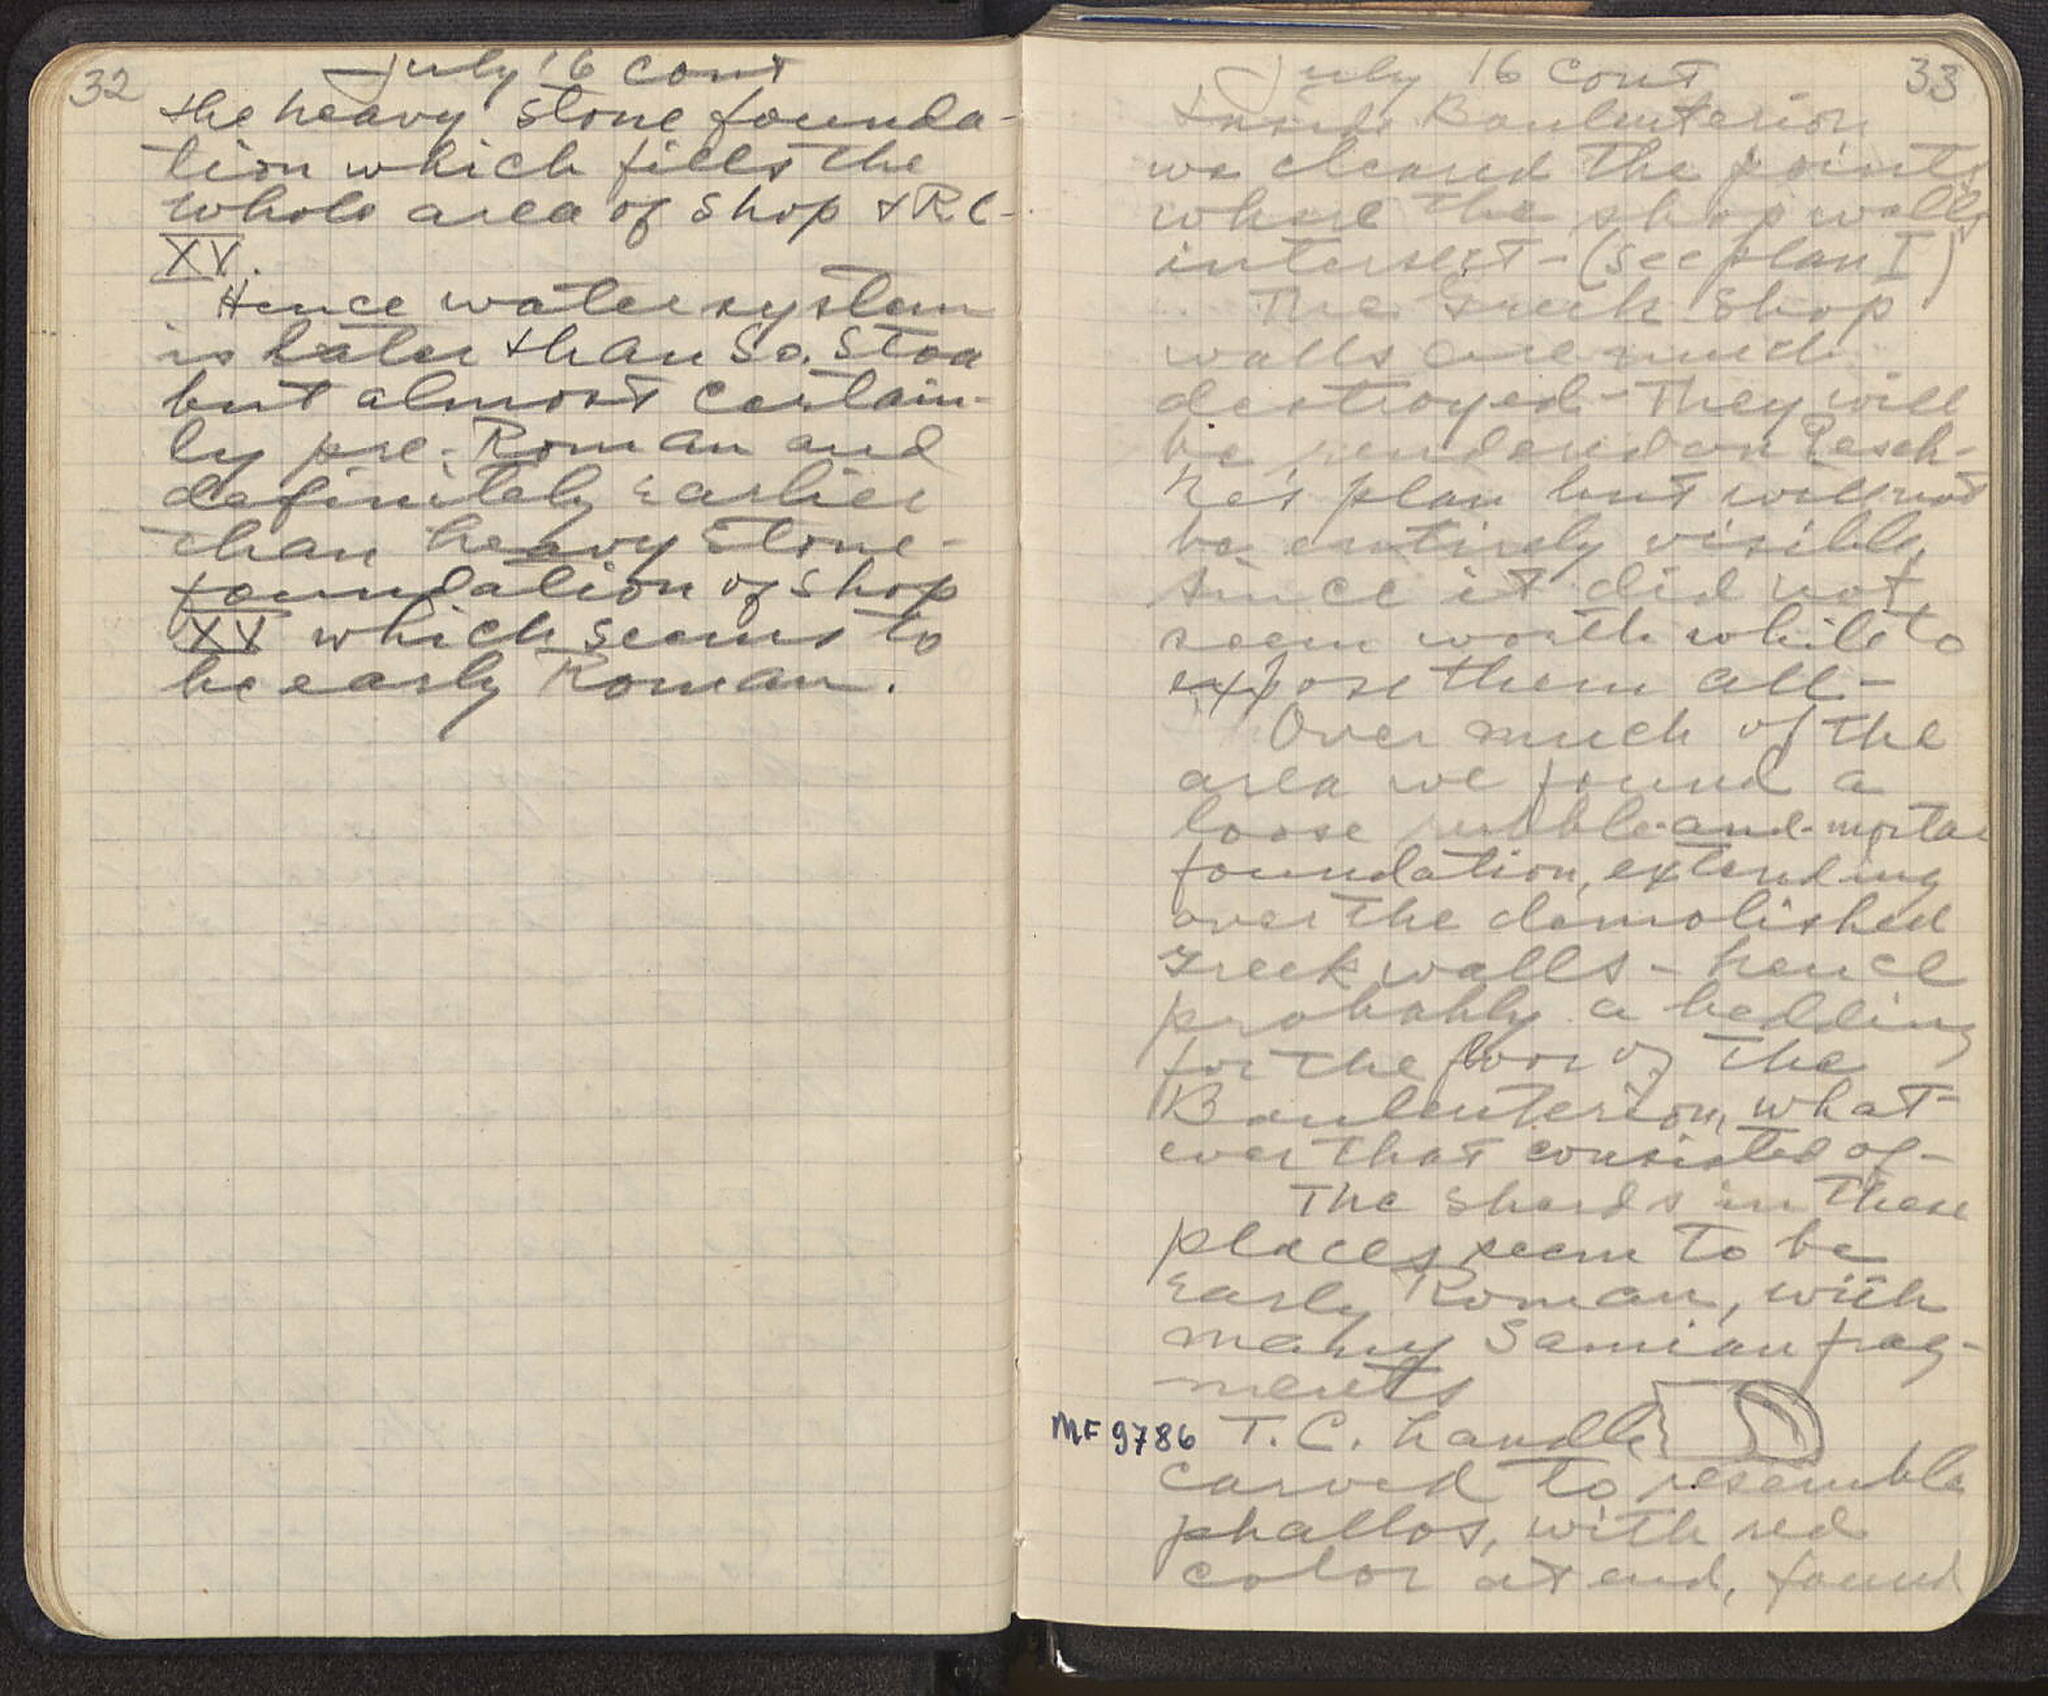 32
July 16 cont
the heavy stone founda-
tion which fills the
whole area of Shop + R C
XV.
Hence water system
is later than So. Stoa
but almost certain-
ly pre-Roman and
definitely earlier
than heavy stone-
foundation of Shop
XV which seems to
be early Roman.
July 16 cont 33
Inside Bouleuterion
we cleared the points
where the shop walls
intersect - (see plan I)
The Greek Shop
walls are much
destroyed - They will
be rendered on Pesch-
ke's plan but will not
be entirely visible,
since it did not
seem worth while to
expose them all -
Over much of the
area we found a
loose rubble-and-mortar
foundation, extending
over the demolished
Greek walls - hence
probably a bedding
for the floor of the
Bouleuterion, what-
ever that consisted of -
The sherds in these
places seem to be
early Roman, with
many Samian frag-
ments
MF 9786 T.C. handle
carved to resemble
phallos, with red
color at end, found